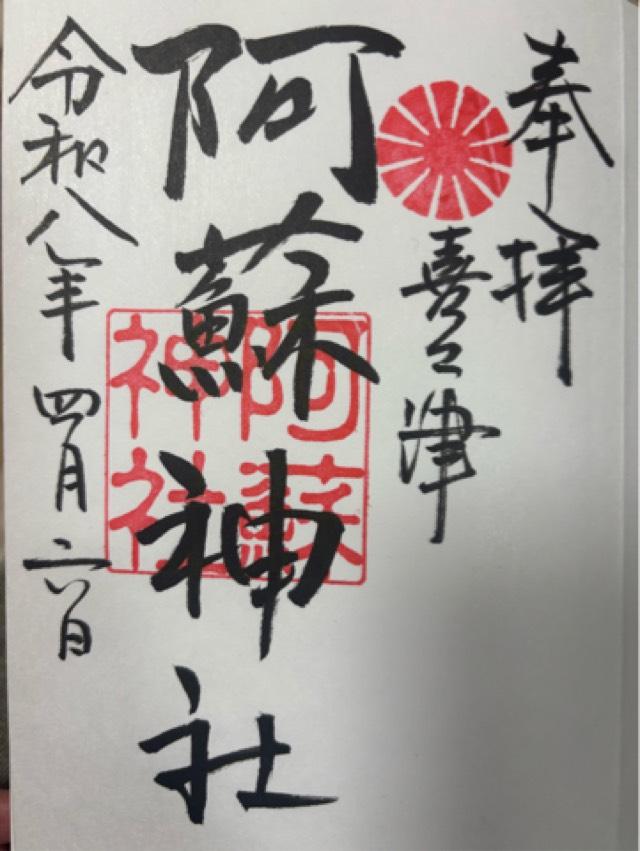 奉拝
喜々津
阿蘇神社
阿蘇神社
令和八年四月六日